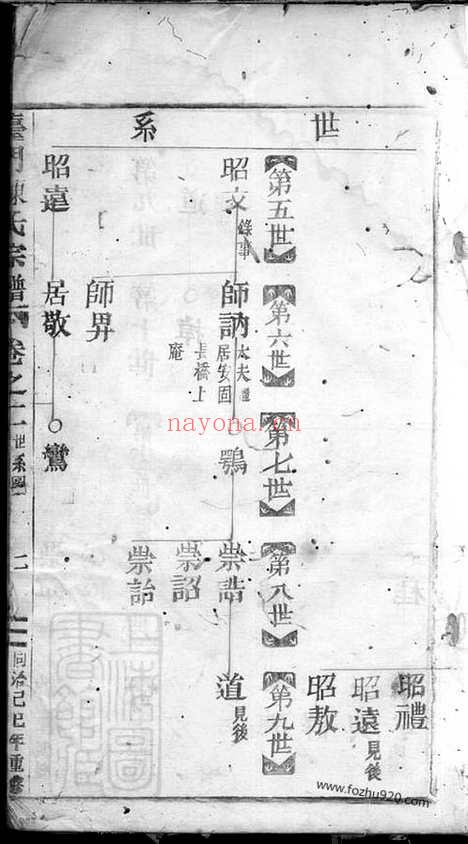 世系
昭禮
昭遠 見後
昭敖
第五世
第六世
第七世
第八世
第九世
昭文 錄事
師訥 大夫
居安固
長橋上
庵
○鶚
崇誥
道 見後
崇詔
崇詒
師昇
昭遠
居敬
○鸞
臺門陳氏宗譜 卷之二 世系圖
同治己巳年重修
上海圖書館藏
nayona.cn
www.fozhu920.com